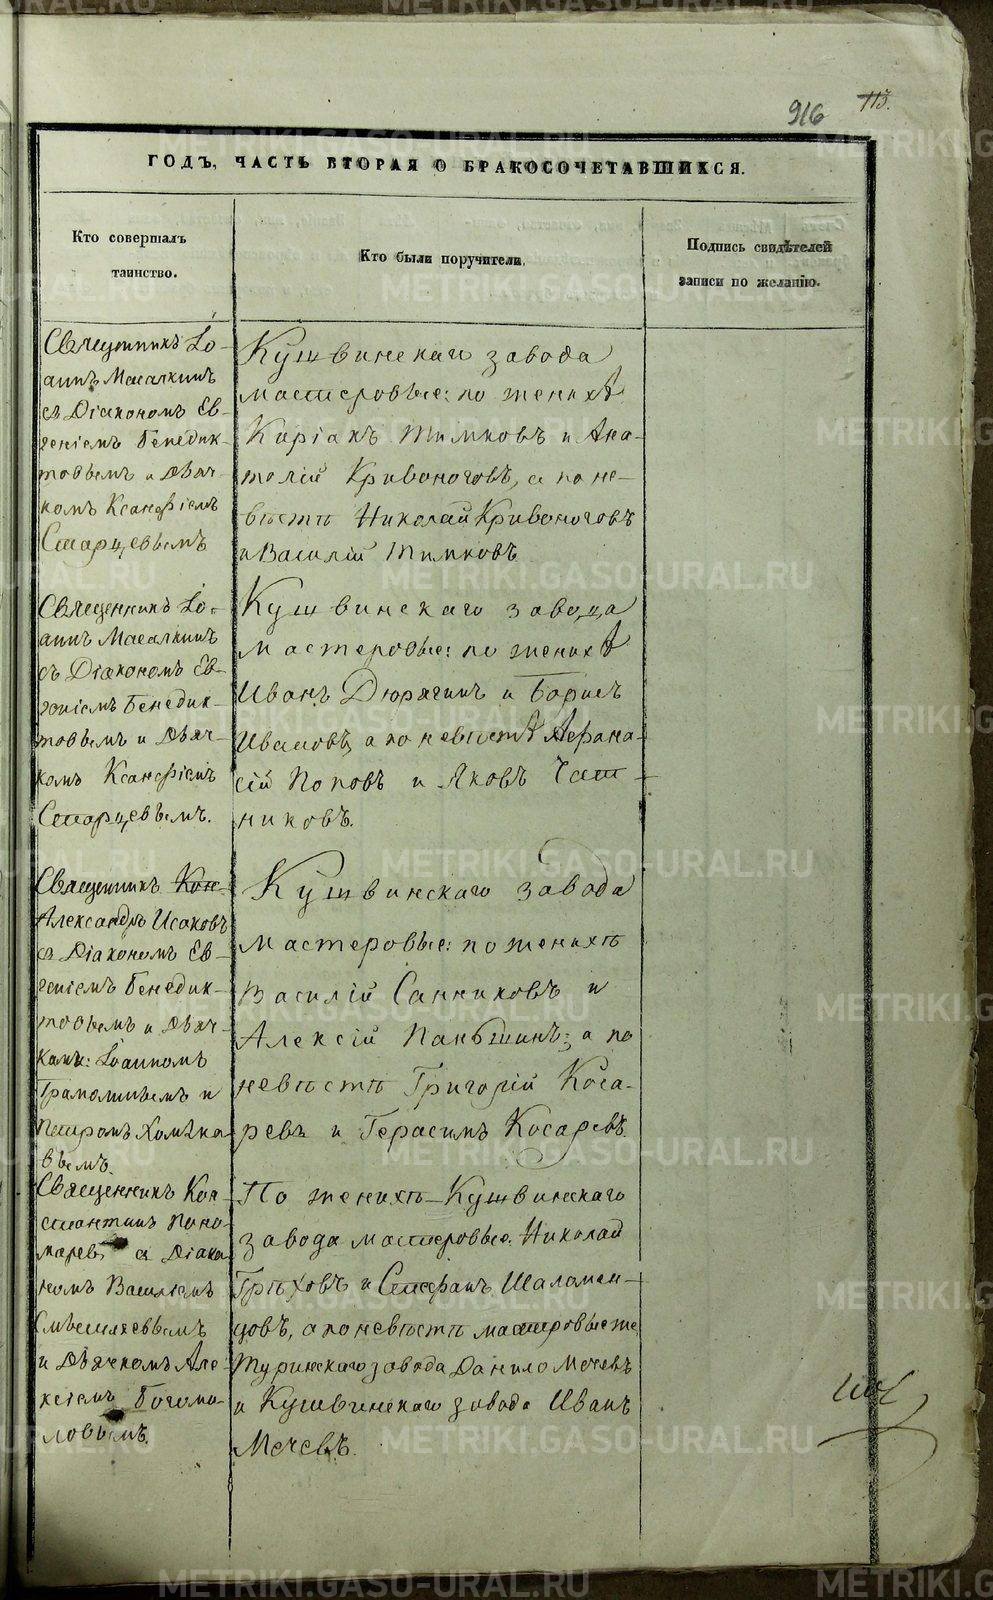 916 113.
ГОДЪ, ЧАСТЬ ВТОРАЯ О БРАКОСОЧЕТАВШИХСЯ.
Кто совершалъ
таинство.
Кто были поручители.
Подпись свидѣтелей
записи по желанію.
Священникъ Іо-
аннъ Масалкинъ
съ Діакономъ Ев-
геніемъ Бенедик-
товымъ и Дьяч-
комъ Ксанфіемъ
Старцевымъ
Кушвинскаго завода
мастеровые: по женихѣ
Киріакъ Тимковъ и Ана-
толій Кривоноговъ, а по не-
вѣстѣ Николай Кривоноговъ
и Василій Тимковъ
Священникъ Іо-
аннъ Масалкинъ
съ Діакономъ Ев-
геніемъ Бенедик-
товымъ и Дьяч-
комъ Ксанфіемъ
Старцевымъ.
Кушвинскаго завода
мастеровые: по женихѣ
Иванъ Дюрягинъ и Борисъ
Ивановъ, а по невѣстѣ Афана-
сій Поповъ и Яковъ
никовъ.
Священникъ Кон-
Александръ Исаковъ
съ Діакономъ Ев-
геніемъ Бенедик-
товымъ и Дьяч-
ками: Іоанномъ
и
Петромъ Хомяко
вымъ.
Кушвинскаго завода
мастеровые: по женихѣ
Василій Санниковъ и
Алексій Паньшинъ; а по
невѣстѣ Григорій Коса-
ревъ и Герасимъ Косаревъ.
Священникъ Кон-
стантинъ Поно-
маревъ съ Діако
номъ Василіемъ
и Дьячкомъ Але-
ксіемъ Богомо-
ловымъ.
По женихѣ Кушвинскаго
завода мастеровые: Николай
Грѣховъ и Стефанъ Шаламен-
цовъ, а по невѣстѣ мастеровые же
Туринскаго завода Данило Мечевъ
и Кушвинскаго завода Иванъ
Мечевъ.
METRIKI.GASO-URAL.RU